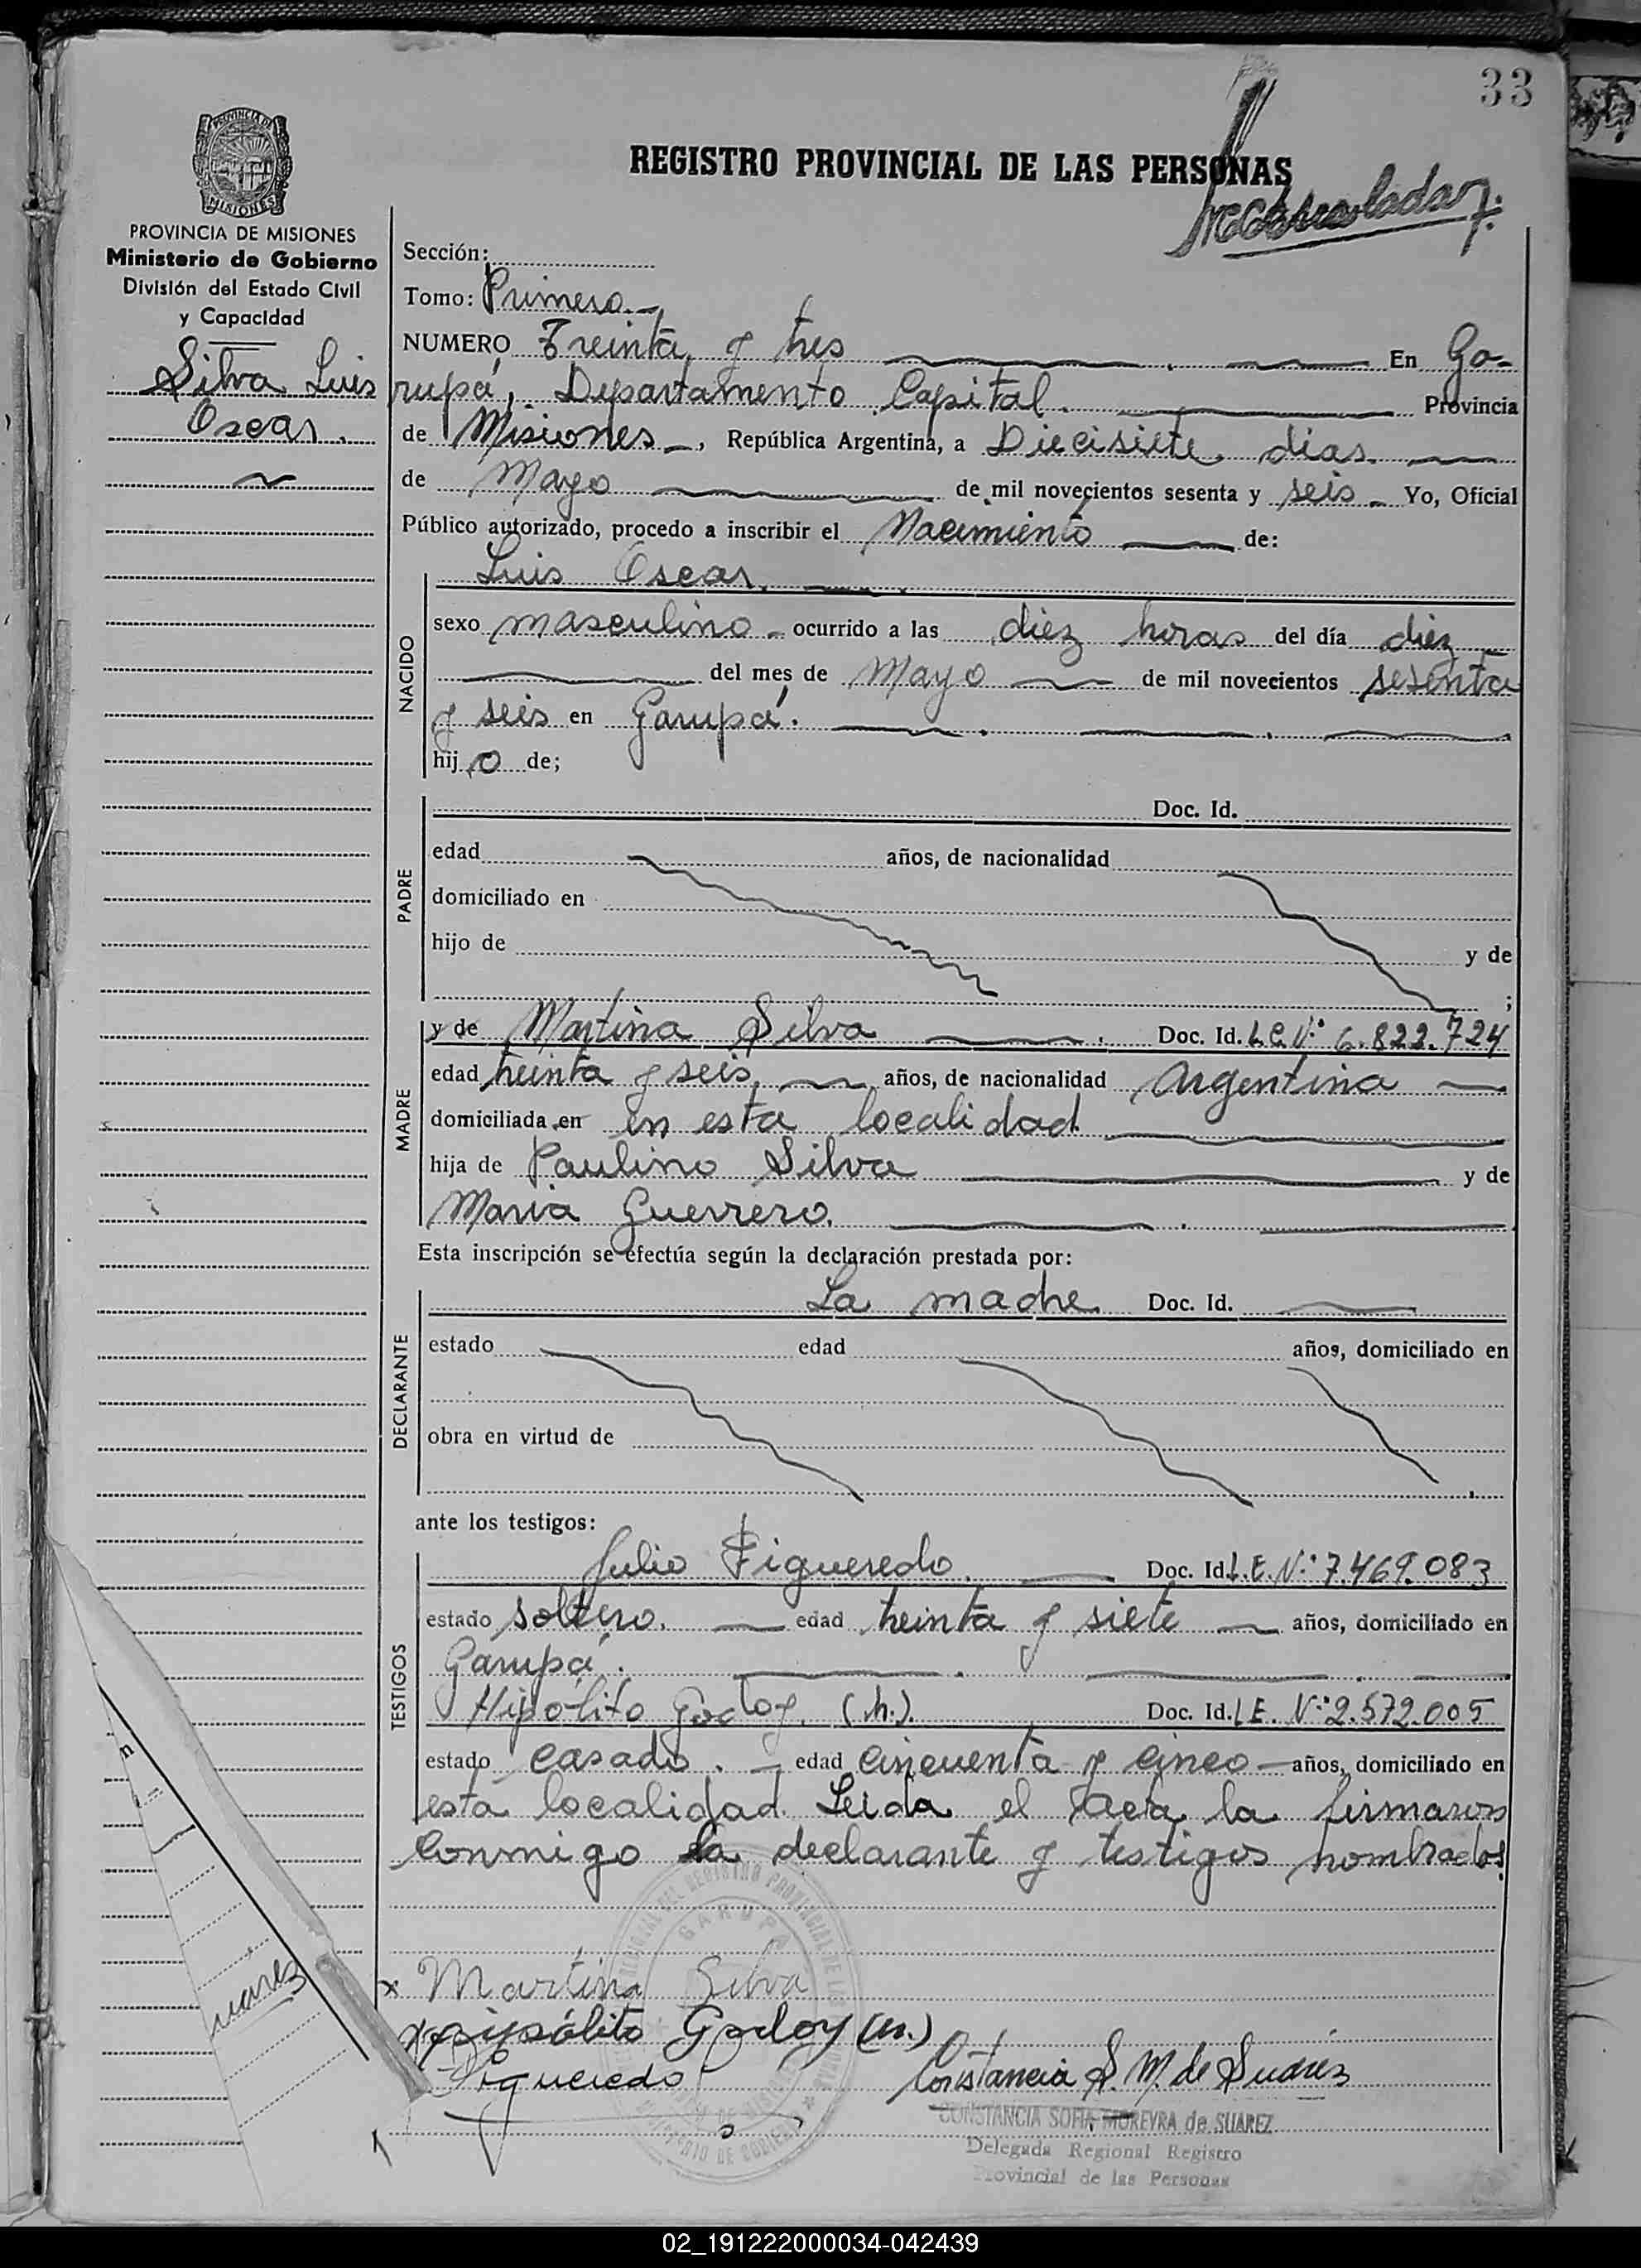 33
PROVINCIA DE
MISIONES
REGISTRO PROVINCIAL DE LAS PERSONAS
PROVINCIA DE MISIONES
Ministerio de Gobierno
División del Estado Civil
y Capacidad
Silva Luis
Oscar.
Sección:
Tomo: Primero.-
NUMERO Treinta y tres En Ga-
rupá, Departamento Capital. Provincia
de Misiones -, República Argentina, a Diecisiete dias
de Mayo de mil novecientos sesenta y seis - Yo, Oficial
Público autorizado, procedo a inscribir el Nacimiento de:
Luis Oscar.
NACIDO
sexo masculino - ocurrido a las diez horas del día diez
del mes de Mayo de mil novecientos sesenta
y seis en Garupá.
hij o de;
PADRE
Doc. Id.
edad años, de nacionalidad
domiciliado en
hijo de y de
;
MADRE
y de Martina Silva . Doc. Id. L.C. Nº 6.822.724
edad treinta y seis, años, de nacionalidad Argentina
domiciliada en en esta localidad
hija de Paulino Silva y de
Maria Guerrero.
Esta inscripción se efectúa según la declaración prestada por:
DECLARANTE
La madre Doc. Id.
estado edad años, domiciliado en
obra en virtud de
ante los testigos:
TESTIGOS
Julio Figueredo. Doc. Id. L.E. Nº 7.469.083
estado soltero. edad treinta y siete años, domiciliado en
Garupá.
Hipólito Godoy (h.). Doc. Id. L.E. Nº 2.572.005
estado casado. - edad cincuenta y cinco - años, domiciliado en
esta localidad. Leida el acta la firmaron
conmigo la declarante y testigos nombrados.
GARUPA
x Martina Silva
Hipólito Godoy (h.)
Figueredo
Constancia S. M. de Suarez
CONSTANCIA SOFIA MOREYRA de SUAREZ
Delegada Regional Registro
Provincial de las Personas
uarez
02_191222000034-042439